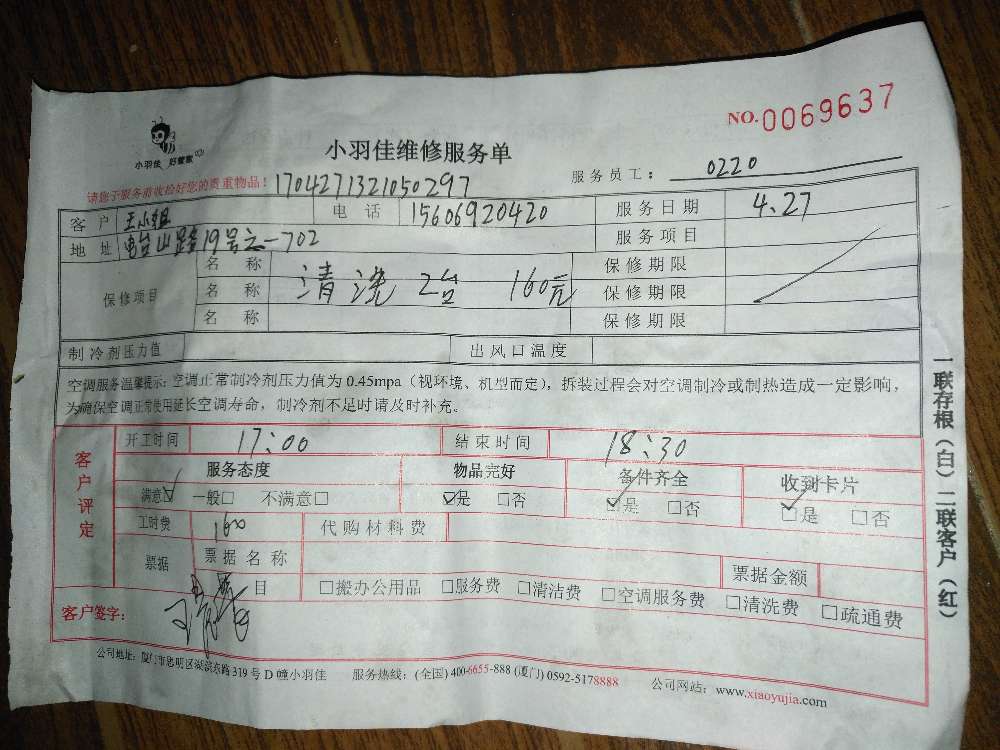 NO.0069637
小羽佳 好管家
小羽佳维修服务单
服务员工： 0220
请您于服务前收拾好您的贵重物品！ 1704271321050297
客户 王小姐 电话 15606920420 服务日期 4.27
地址 电台山路19号之一702 服务项目
保修项目 名称 清洗 2台 160元 保修期限
名称 保修期限
名称 保修期限
制冷剂压力值 出风口温度
空调服务温馨提示：空调正常制冷剂压力值为 0.45mpa（视环境、机型而定），拆装过程会对空调制冷或制热造成一定影响，
为确保空调正常使用延长空调寿命，制冷剂不足时请及时补充。
客户评定
开工时间 17:00 结束时间 18:30
服务态度 物品完好 备件齐全 收到卡片
满意☑ 一般□ 不满意□ ☑是 □否 ☑是 □否 ☑是 □否
工时费 160 代购材料费
票据 票据名称 票据金额
目 □搬办公用品 □服务费 □清洁费 □空调服务费 □清洗费 □疏通费
客户签字：
公司地址：厦门市思明区湖滨东路 319 号 D 幢小羽佳 服务热线：(全国) 400-6655-888 (厦门) 0592-5178888 公司网站：www.xiaoyujia.com
一联存根（白）二联客户（红）